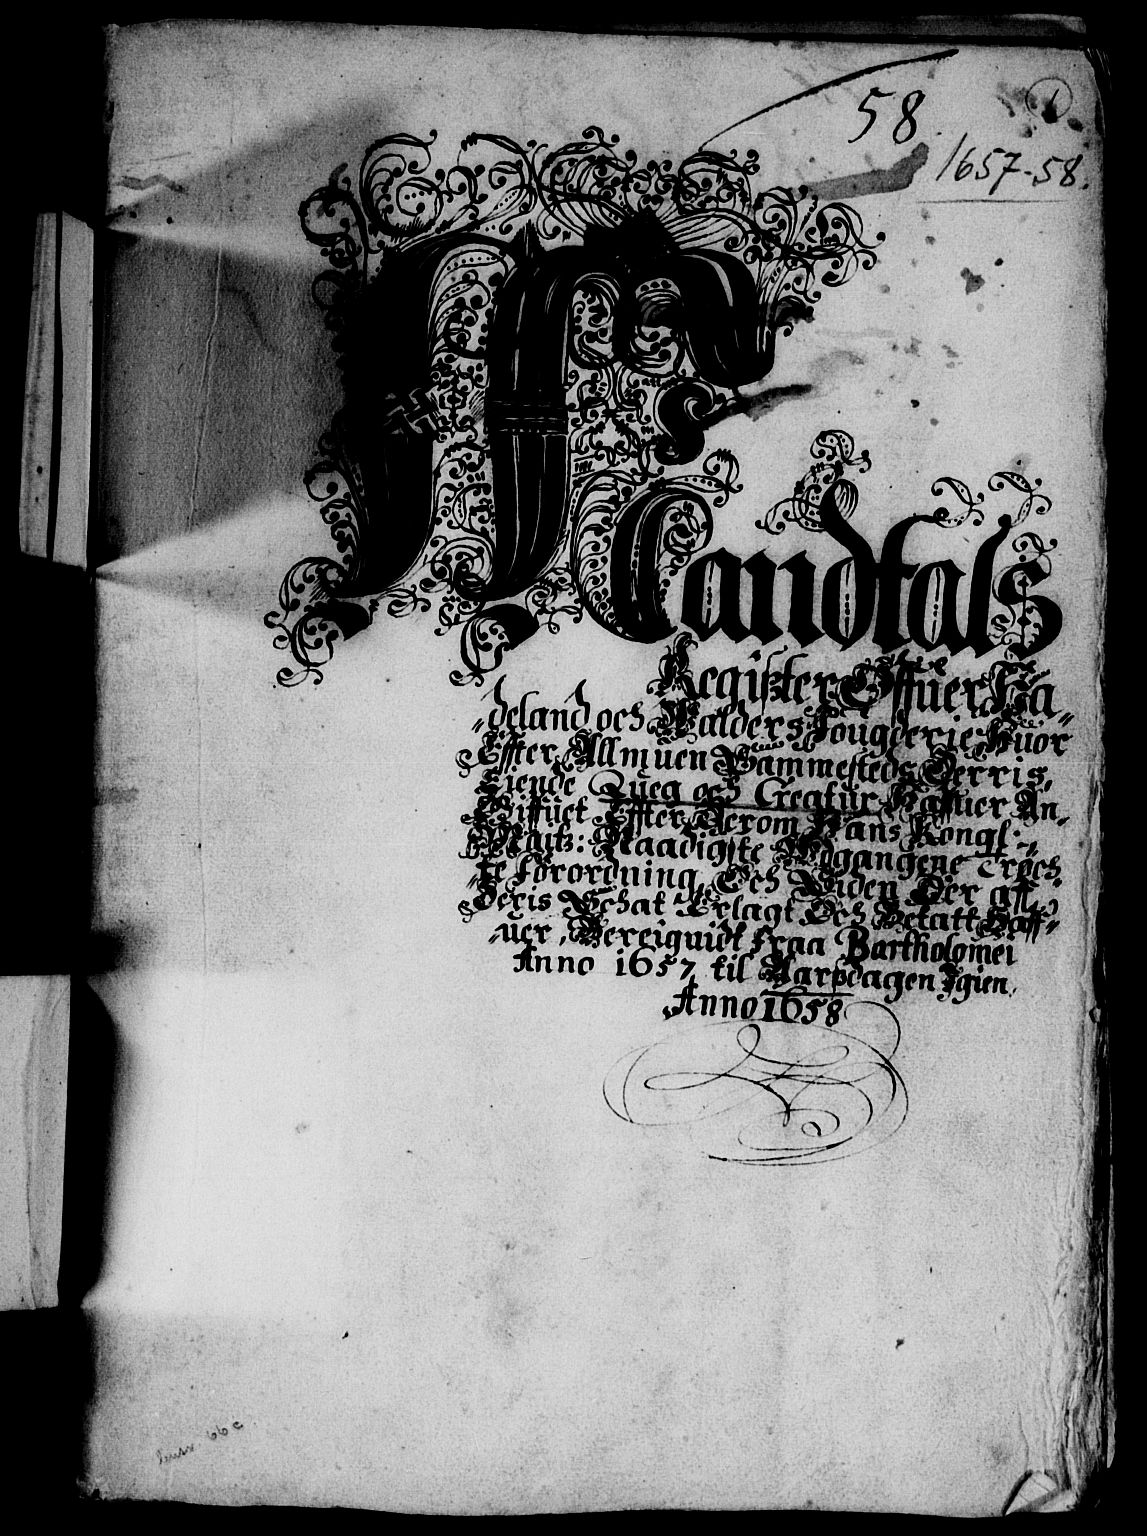 1
58
1657-58.
Mandtals
Register Offuer Ha,,
deland och Walders Fougderie Huor
Effter Allmuen Sammesteds Derris,
Eiende Qveg och Creatur Haffuer An,,
Giffuet Effter Derom Hans Kongl:
Maÿtz: Naadigste Udgangene Tröch
te forordning, Och Siden Der aff
Deris Schat Erlagt Och Betalt Haff,,
uer, Bereignidt fraa Bartholomei
Anno 1657 til Aarsdagen Igien
Anno 1658
66 c